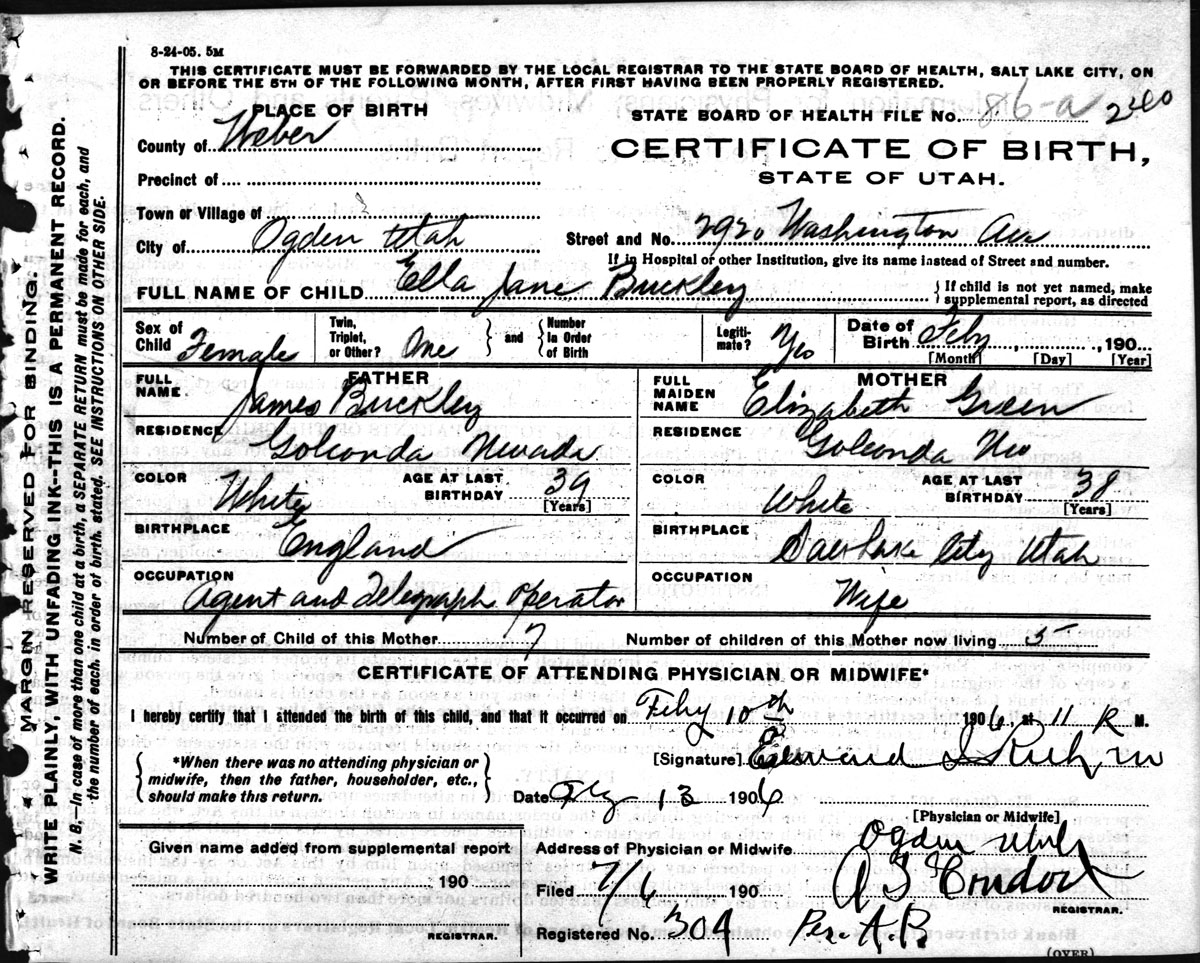 8-24-05. 5M
THIS CERTIFICATE MUST BE FORWARDED BY THE LOCAL REGISTRAR TO THE STATE BOARD OF HEALTH, SALT LAKE CITY, ON
OR BEFORE THE 5TH OF THE FOLLOWING MONTH, AFTER FIRST HAVING BEEN PROPERLY REGISTERED.
MARGIN RESERVED FOR BINDING.
WRITE PLAINLY, WITH UNFADING INK--THIS IS A PERMANENT RECORD.
N. B.—In case of more than one child at a birth, a SEPARATE RETURN must be made for each, and
the number of each, in order of birth, stated. SEE INSTRUCTIONS ON OTHER SIDE.
PLACE OF BIRTH
STATE BOARD OF HEALTH FILE No. 86-a 240
County of Weber
CERTIFICATE OF BIRTH,
STATE OF UTAH.
Precinct of
Town or Village of
City of Ogden Utah
Street and No. 2920 Washington Ave
If in Hospital or other Institution, give its name instead of Street and number.
FULL NAME OF CHILD Ella Jane Buckley
If child is not yet named, make
supplemental report, as directed
Sex of Child Female
Twin, Triplet, or Other? One
and
Number in Order of Birth
Legiti-mate? Yes
Date of Birth Feby , , 190
[Month] [Day] [Year]
FATHER
FULL NAME James Buckley
RESIDENCE Golconda Nevada
COLOR White
AGE AT LAST BIRTHDAY 39
[Years]
BIRTHPLACE England
OCCUPATION Agent and Telegraph Operator
MOTHER
FULL MAIDEN NAME Elizabeth Green
RESIDENCE Golconda Nev
COLOR White
AGE AT LAST BIRTHDAY 38
[Years]
BIRTHPLACE Salt Lake City Utah
OCCUPATION Wife
Number of Child of this Mother 7
Number of children of this Mother now living 5
CERTIFICATE OF ATTENDING PHYSICIAN OR MIDWIFE*
I hereby certify that I attended the birth of this child, and that it occurred on Feby 10th 1906, at 11 P. M.
[Signature] Edward I
*When there was no attending physician or
midwife, then the father, householder, etc.,
should make this return.
Date 13 1906
[Physician or Midwife]
Given name added from supplemental report
190
REGISTRAR.
Address of Physician or Midwife Ogden Utah
Filed 7/6 190
REGISTRAR.
Registered No. 304 Per. A.B.
(OVER)